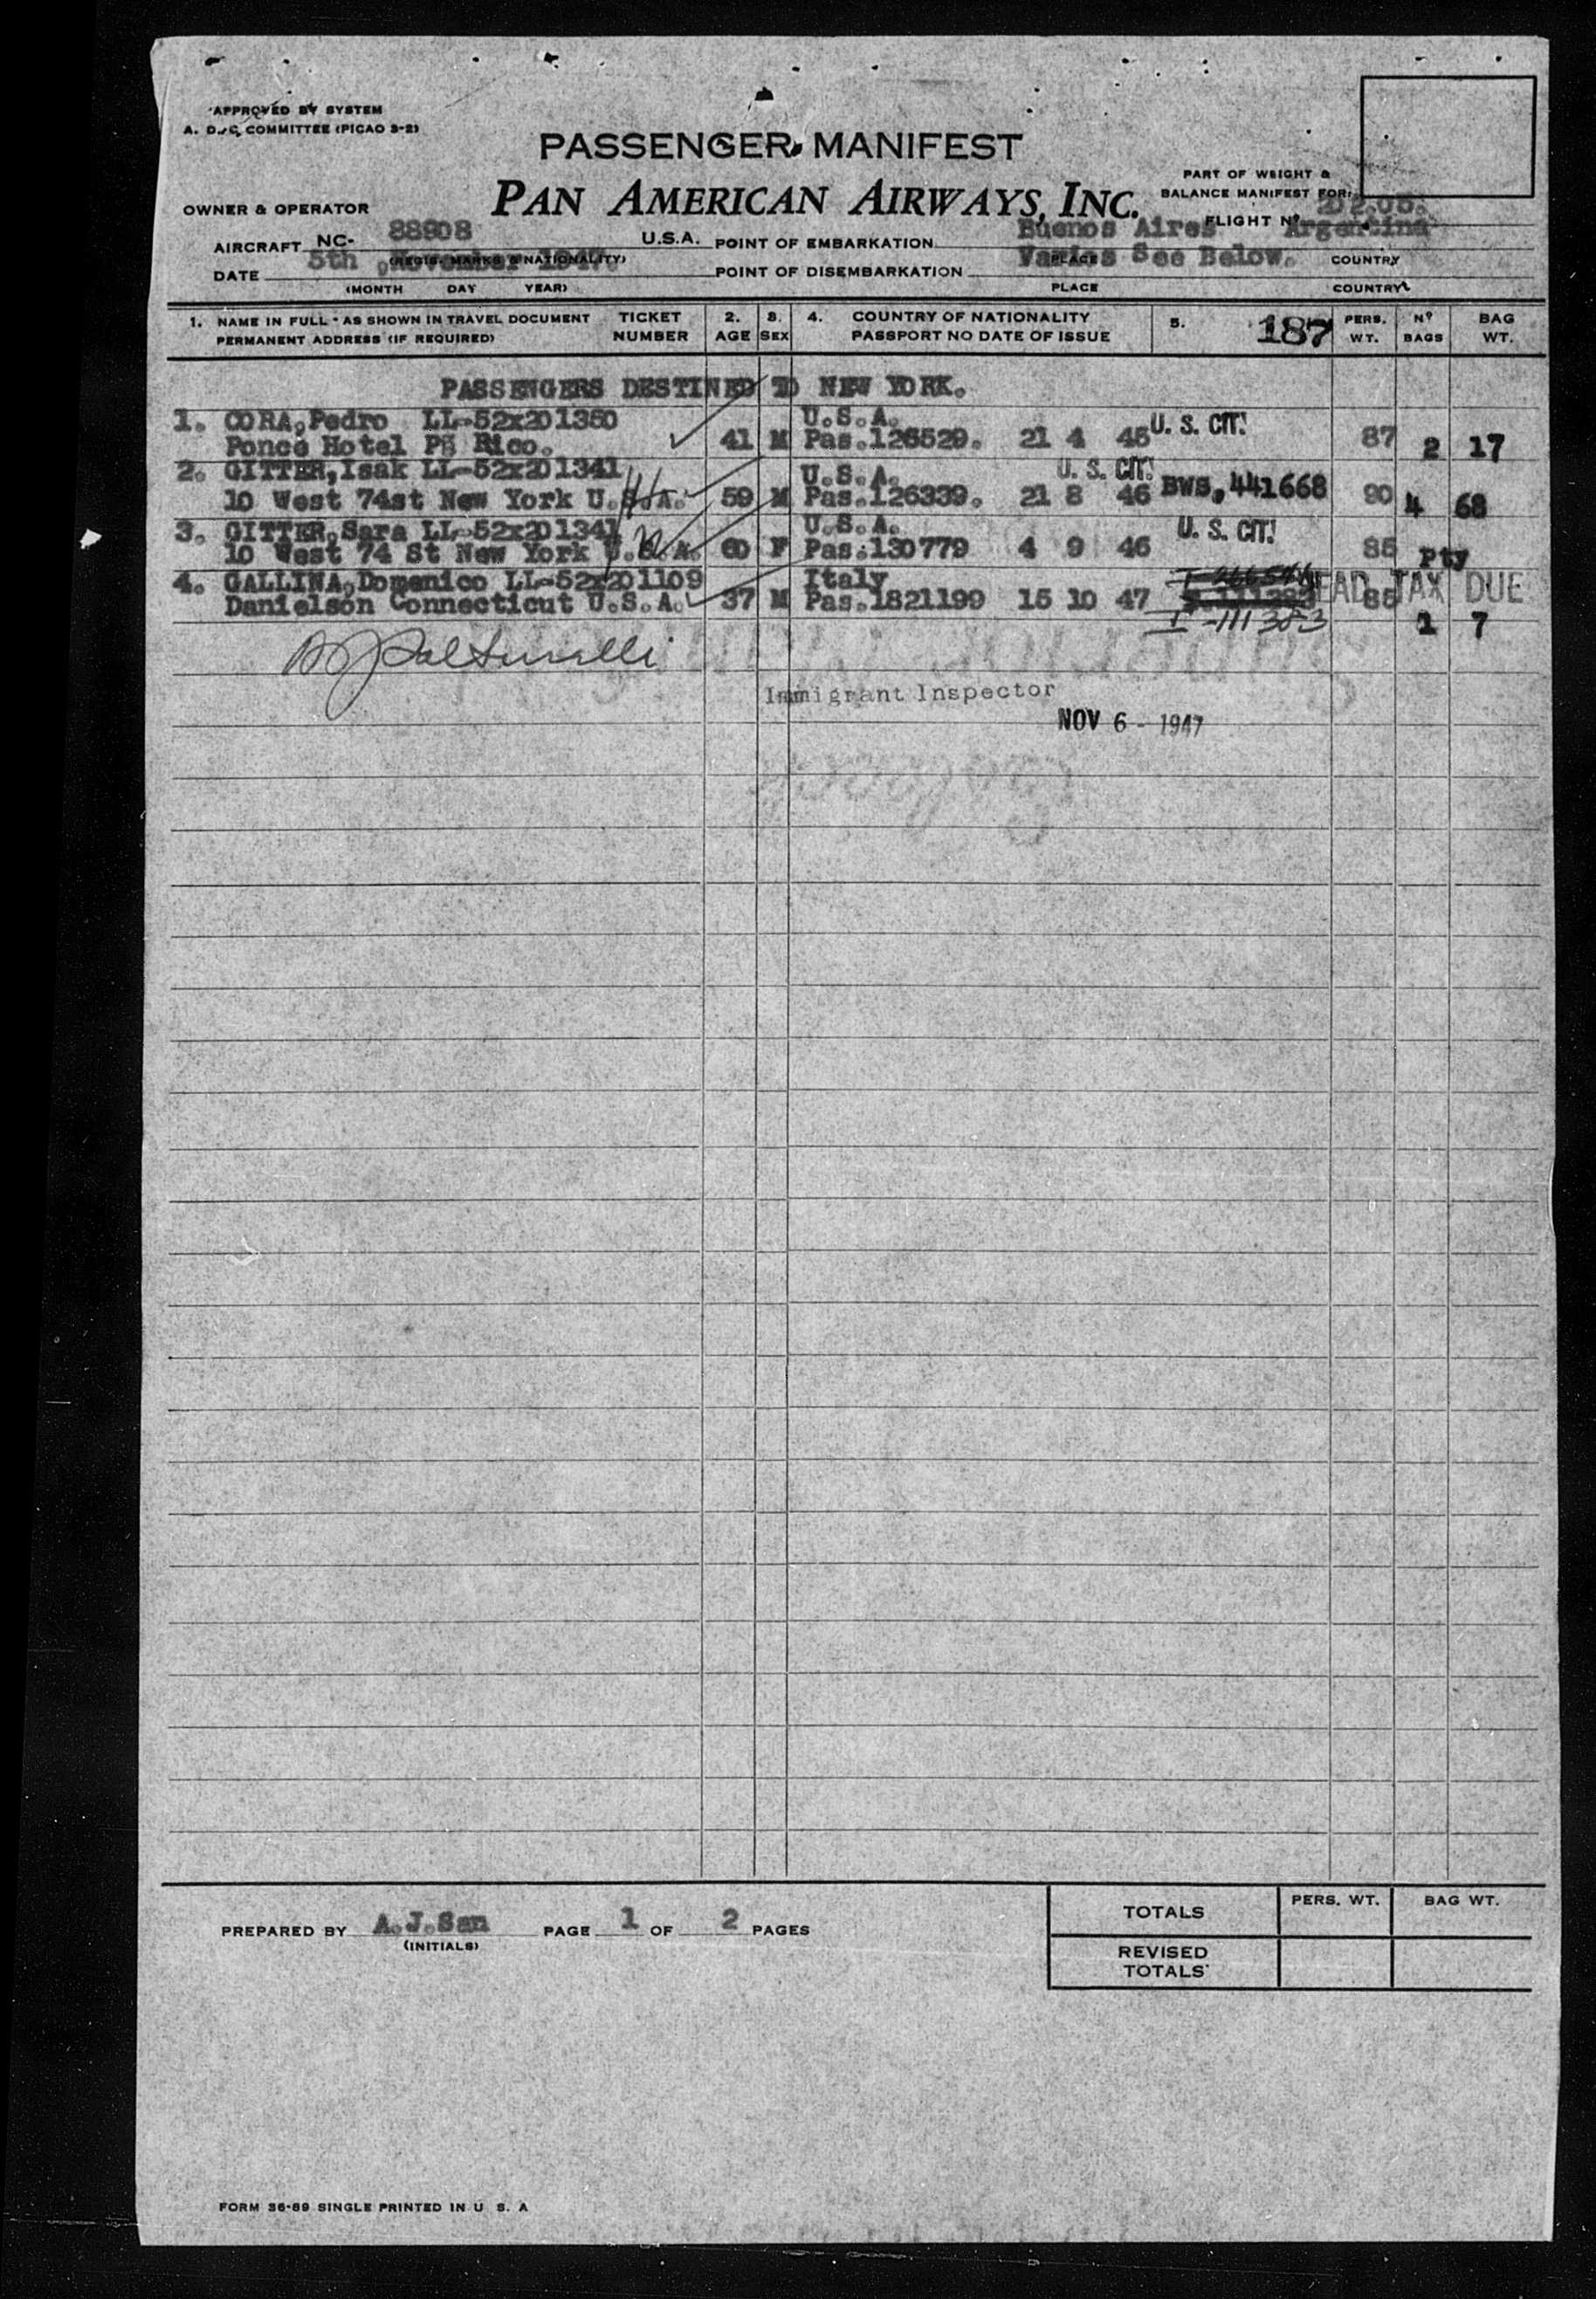 APPROVED BY SYSTEM
A. D. C. COMMITTEE (PICAO 3-2)
PASSENGER MANIFEST
PAN AMERICAN AIRWAYS, INC.
PART OF WEIGHT &
BALANCE MANIFEST FOR:
OWNER & OPERATOR
FLIGHT Nº 202.05.
AIRCRAFT NC- 88908 U.S.A. POINT OF EMBARKATION Buenos Aires Argentina
(REGIS. MARKS & NATIONALITY) PLACE COUNTRY
DATE 5th November 1947. POINT OF DISEMBARKATION Varios See Below.
(MONTH DAY YEAR) PLACE COUNTRY
1. NAME IN FULL - AS SHOWN IN TRAVEL DOCUMENT TICKET 2. 3. 4. COUNTRY OF NATIONALITY 5. 187 PERS. Nº BAG
PERMANENT ADDRESS (IF REQUIRED) NUMBER AGE SEX PASSPORT NO DATE OF ISSUE WT. BAGS WT.
PASSENGERS DESTINED TO NEW YORK.
1. CORA, Pedro LL-52x201350 U.S.A. U. S. CIT.
Ponce Hotel Rico. 41 M Pas.126529. 21 4 45 87 2 17
2. GITTER, Isak LL-52x201341 U.S.A. U. S. CIT.
10 West 74st New York U.S.A. 59 M Pas.126339. 21 8 46 BWS, 441668 90 4 68
3. GITTER, Sara LL-52x201341 U.S.A. U. S. CIT.
10 West 74 St New York U.S.A. 60 F Pas.130779 4 9 46 85 Pty
4. GALLINA, Domenico LL-52x201109 Italy HEAD TAX DUE
Danielson Connecticut U.S.A. 37 M Pas.1821199 15 10 47 85
I-111383 1 7
Immigrant Inspector
NOV 6 - 1947
PREPARED BY A.J.San PAGE 1 OF 2 PAGES
(INITIALS)
TOTALS PERS. WT. BAG WT.
REVISED
TOTALS
FORM 36-89 SINGLE PRINTED IN U. S. A